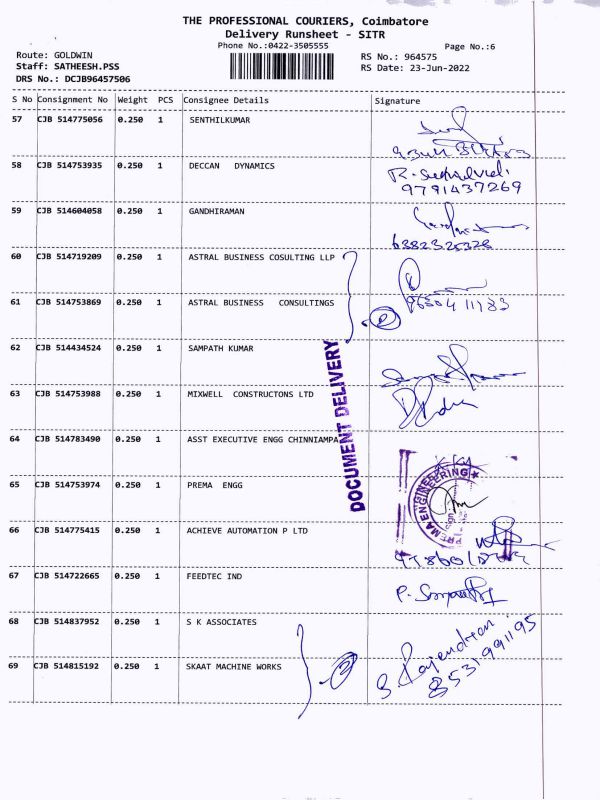 THE PROFESSIONAL COURIERS, Coimbatore
Delivery Runsheet - SITR
Phone No.:0422-3505555
Page No.:6
Route: GOLDWIN
RS No.: 964575
Staff: SATHEESH.PSS
RS Date: 23-Jun-2022
DRS No.: DCJB96457506
S No Consignment No Weight PCS Consignee Details Signature
57 CJB 514775056 0.250 1 SENTHILKUMAR
58 CJB 514753935 0.250 1 DECCAN DYNAMICS
9791437269
59 CJB 514604058 0.250 1 GANDHIRAMAN
6382325328
60 CJB 514719209 0.250 1 ASTRAL BUSINESS COSULTING LLP
61 CJB 514753869 0.250 1 ASTRAL BUSINESS CONSULTINGS
62 CJB 514434524 0.250 1 SAMPATH KUMAR
63 CJB 514753988 0.250 1 MIXWELL CONSTRUCTONS LTD
64 CJB 514783490 0.250 1 ASST EXECUTIVE ENGG CHINNIAMPA
DOCUMENT DELIVERY
65 CJB 514753974 0.250 1 PREMA ENGG
PREMA ENGINEERING
66 CJB 514775415 0.250 1 ACHIEVE AUTOMATION P LTD
67 CJB 514722665 0.250 1 FEEDTEC IND
68 CJB 514837952 0.250 1 S K ASSOCIATES
69 CJB 514815192 0.250 1 SKAAT MACHINE WORKS
S Rajendran
8531991195